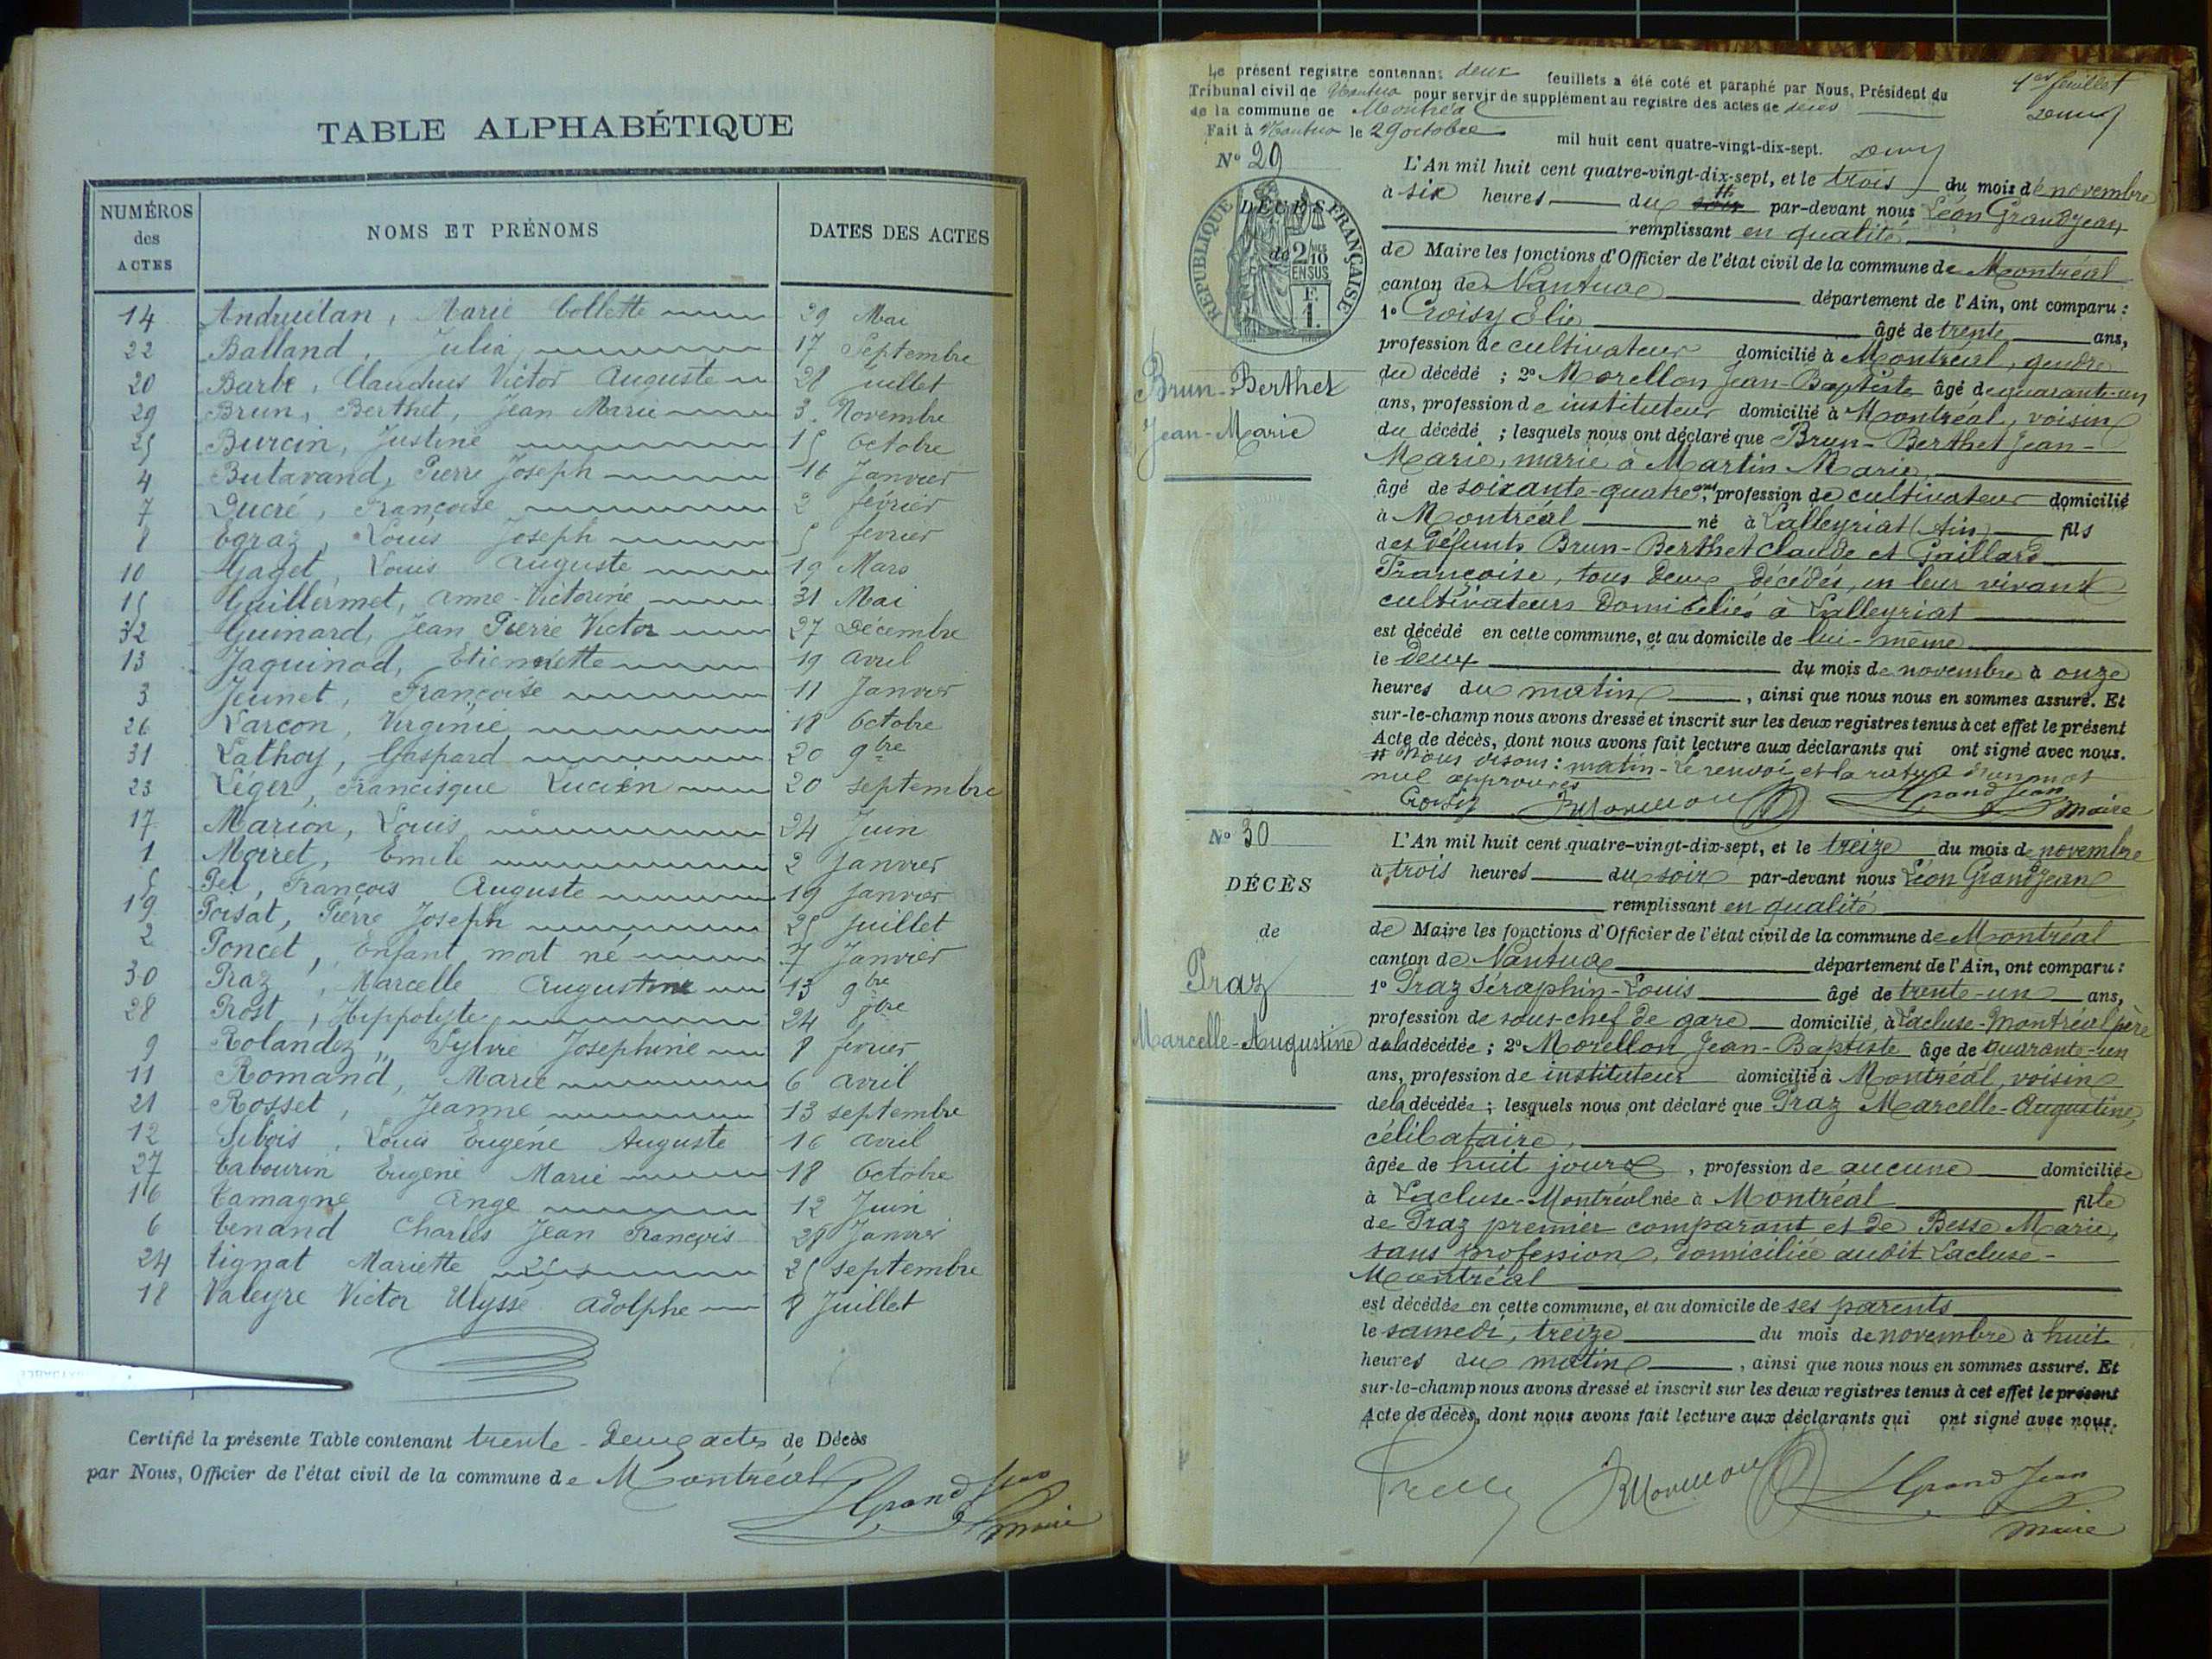 TABLE ALPHABÉTIQUE
NUMÉROS des ACTES NOMS ET PRÉNOMS DATES DES ACTES
14 Andruétan, Marie Collette 29 Mai
22 Balland, Julia 17 Septembre
20 Barbe, Claudius Victor Auguste 28 Juillet
29 Brun, Berthet, Jean Marie 3 Novembre
25 Burcin, Justine 15 Octobre
4 Butavand, Pierre Joseph 16 Janvier
7 Ducré, Françoise 2 février
8 Egraz, Louis Joseph 5 fevrier
10 Gaget, Louis Auguste 19 Mars
15 Guillermet, anne-Victorine 31 Mai
32 Guinard, Jean Pierre Victor 27 Décembre
13 Jaquinod, Etiennette 19 avril
3 Jeunet, Françoise 11 Janvier
26 Larçon, Virginie 18 Octobre
31 Lathoy, Gaspard 20 9bre
23 Léger, Francisque Lucien 20 septembre
17 Marion, Louis 24 Juin
1 Moiret, Emile 2 Janvier
5 Pel, François Auguste 19 Janvier
19 Poisat, Pierre Joseph 25 Juillet
2 Poncet, Enfant mort né 7 Janvier
30 Praz, Marcelle Augustine 13 9bre
28 Prost, Hippolyte 24 8bre
9 Rolandez, Sylvie Josephine 8 fevrier
11 Romand, Marie 6 avril
21 Rosset, Jeanne 13 septembre
12 Sibois, Louis Eugéne Auguste 16 avril
27 Tabourin Eugéne Marie 18 Octobre
16 Tamagne Ange 12 Juin
6 Tenand Charles Jean François 28 Janvier
24 Tignat Mariette 25 septembre
18 Valeyre Victor Ulysse Adolphe 8 Juillet
Certifié la présente Table contenant trente-deux actes de Décès
par Nous, Officier de l'état civil de la commune de Montréal
LGrandJean
maire
Le présent registre contenant deux feuillets a été coté et paraphé par Nous, Président du
1er feuillet
Tribunal civil de Nantua pour servir de supplément au registre des actes de décès
de la commune de Montréal
Fait à Nantua le 29 octobre mil huit cent quatre-vingt-dix-sept.
N° 29
L'An mil huit cent quatre-vingt-dix-sept, et le trois du mois de novembre
à six heures du soir # par-devant nous Léon Grandjean
remplissant en qualité
de Maire les fonctions d'Officier de l'état civil de la commune de Montréal
canton de Nantua département de l'Ain, ont comparu :
RÉPUBLIQUE FRANÇAISE
DÉCÈS
de
2/10 EN SUS
F. 1.
Brun-Berthet
Jean-Marie
1° Croisy Elie âgé de trente ans,
profession de cultivateur domicilié à Montréal, gendre
du décédé ; 2° Morellon Jean-Baptiste âgé de quarante-un
ans, profession de instituteur domicilié à Montréal, voisin
du décédé ; lesquels nous ont déclaré que Brun-Berthet Jean-
Marie, marié à Martin Marie,
âgé de soixante-quatre ans, profession de cultivateur domicilié
à Montréal né à Lalleyriat (Ain) fils
des défunts Brun-Berthet Claude et Gaillard
Françoise, tous deux décédés, en leur vivant
cultivateurs domiciliés à Lalleyriat
est décédé en cette commune, et au domicile de lui-même
le deux du mois de novembre à onze
heures du matin, ainsi que nous nous en sommes assuré. Et
sur-le-champ nous avons dressé et inscrit sur les deux registres tenus à cet effet le présent
Acte de décès, dont nous avons fait lecture aux déclarants qui ont signé avec nous.
# Nous disons : matin - Le renvoi et la rature d'un mot
nul approuvés
Croisy JBMorellon LGrandJean
maire
N° 30
DÉCÈS
de
Praz
Marcelle-Augustine
L'An mil huit cent quatre-vingt-dix-sept, et le treize du mois de novembre
à trois heures du soir par-devant nous Léon Grandjean
remplissant en qualité
de Maire les fonctions d'Officier de l'état civil de la commune de Montréal
canton de Nantua département de l'Ain, ont comparu :
1° Praz Séraphin-Louis âgé de trente-un ans,
profession de sous-chef de gare domicilié à Lacluse-Montréal père
de la décédée ; 2° Morellon Jean-Baptiste âgé de quarante-un
ans, profession de instituteur domicilié à Montréal, voisin
de la décédée ; lesquels nous ont déclaré que Praz Marcelle-Augustine,
célibataire,
âgée de huit jours, profession de aucune domiciliée
à Lacluse-Montréal née à Montréal fille
de Praz premier comparant et de Besse Marie,
sans profession, domiciliée audit Lacluse-
Montréal
est décédée en cette commune, et au domicile de ses parents
le samedi, treize du mois de novembre à huit
heures du matin, ainsi que nous nous en sommes assuré. Et
sur-le-champ nous avons dressé et inscrit sur les deux registres tenus à cet effet le présent
Acte de décès, dont nous avons fait lecture aux déclarants qui ont signé avec nous.
JBMorellon LGrandJean
maire